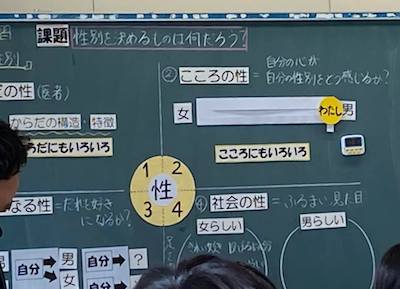 課題 性別を決めるものは何だろう?
性別
の性(医者)
からだの構造・特徴
らだにもいろいろ
② こころの性 = 自分の心が
自分の性別をどう感じるか?
女
わたし
男
こころにもいろいろ
1 2
性
3 4
なる性 = だれを好き
になるか?
自分
男
女
自分
?
④ 社会の性 = ふるまい、見た目
女らしい
男らしい